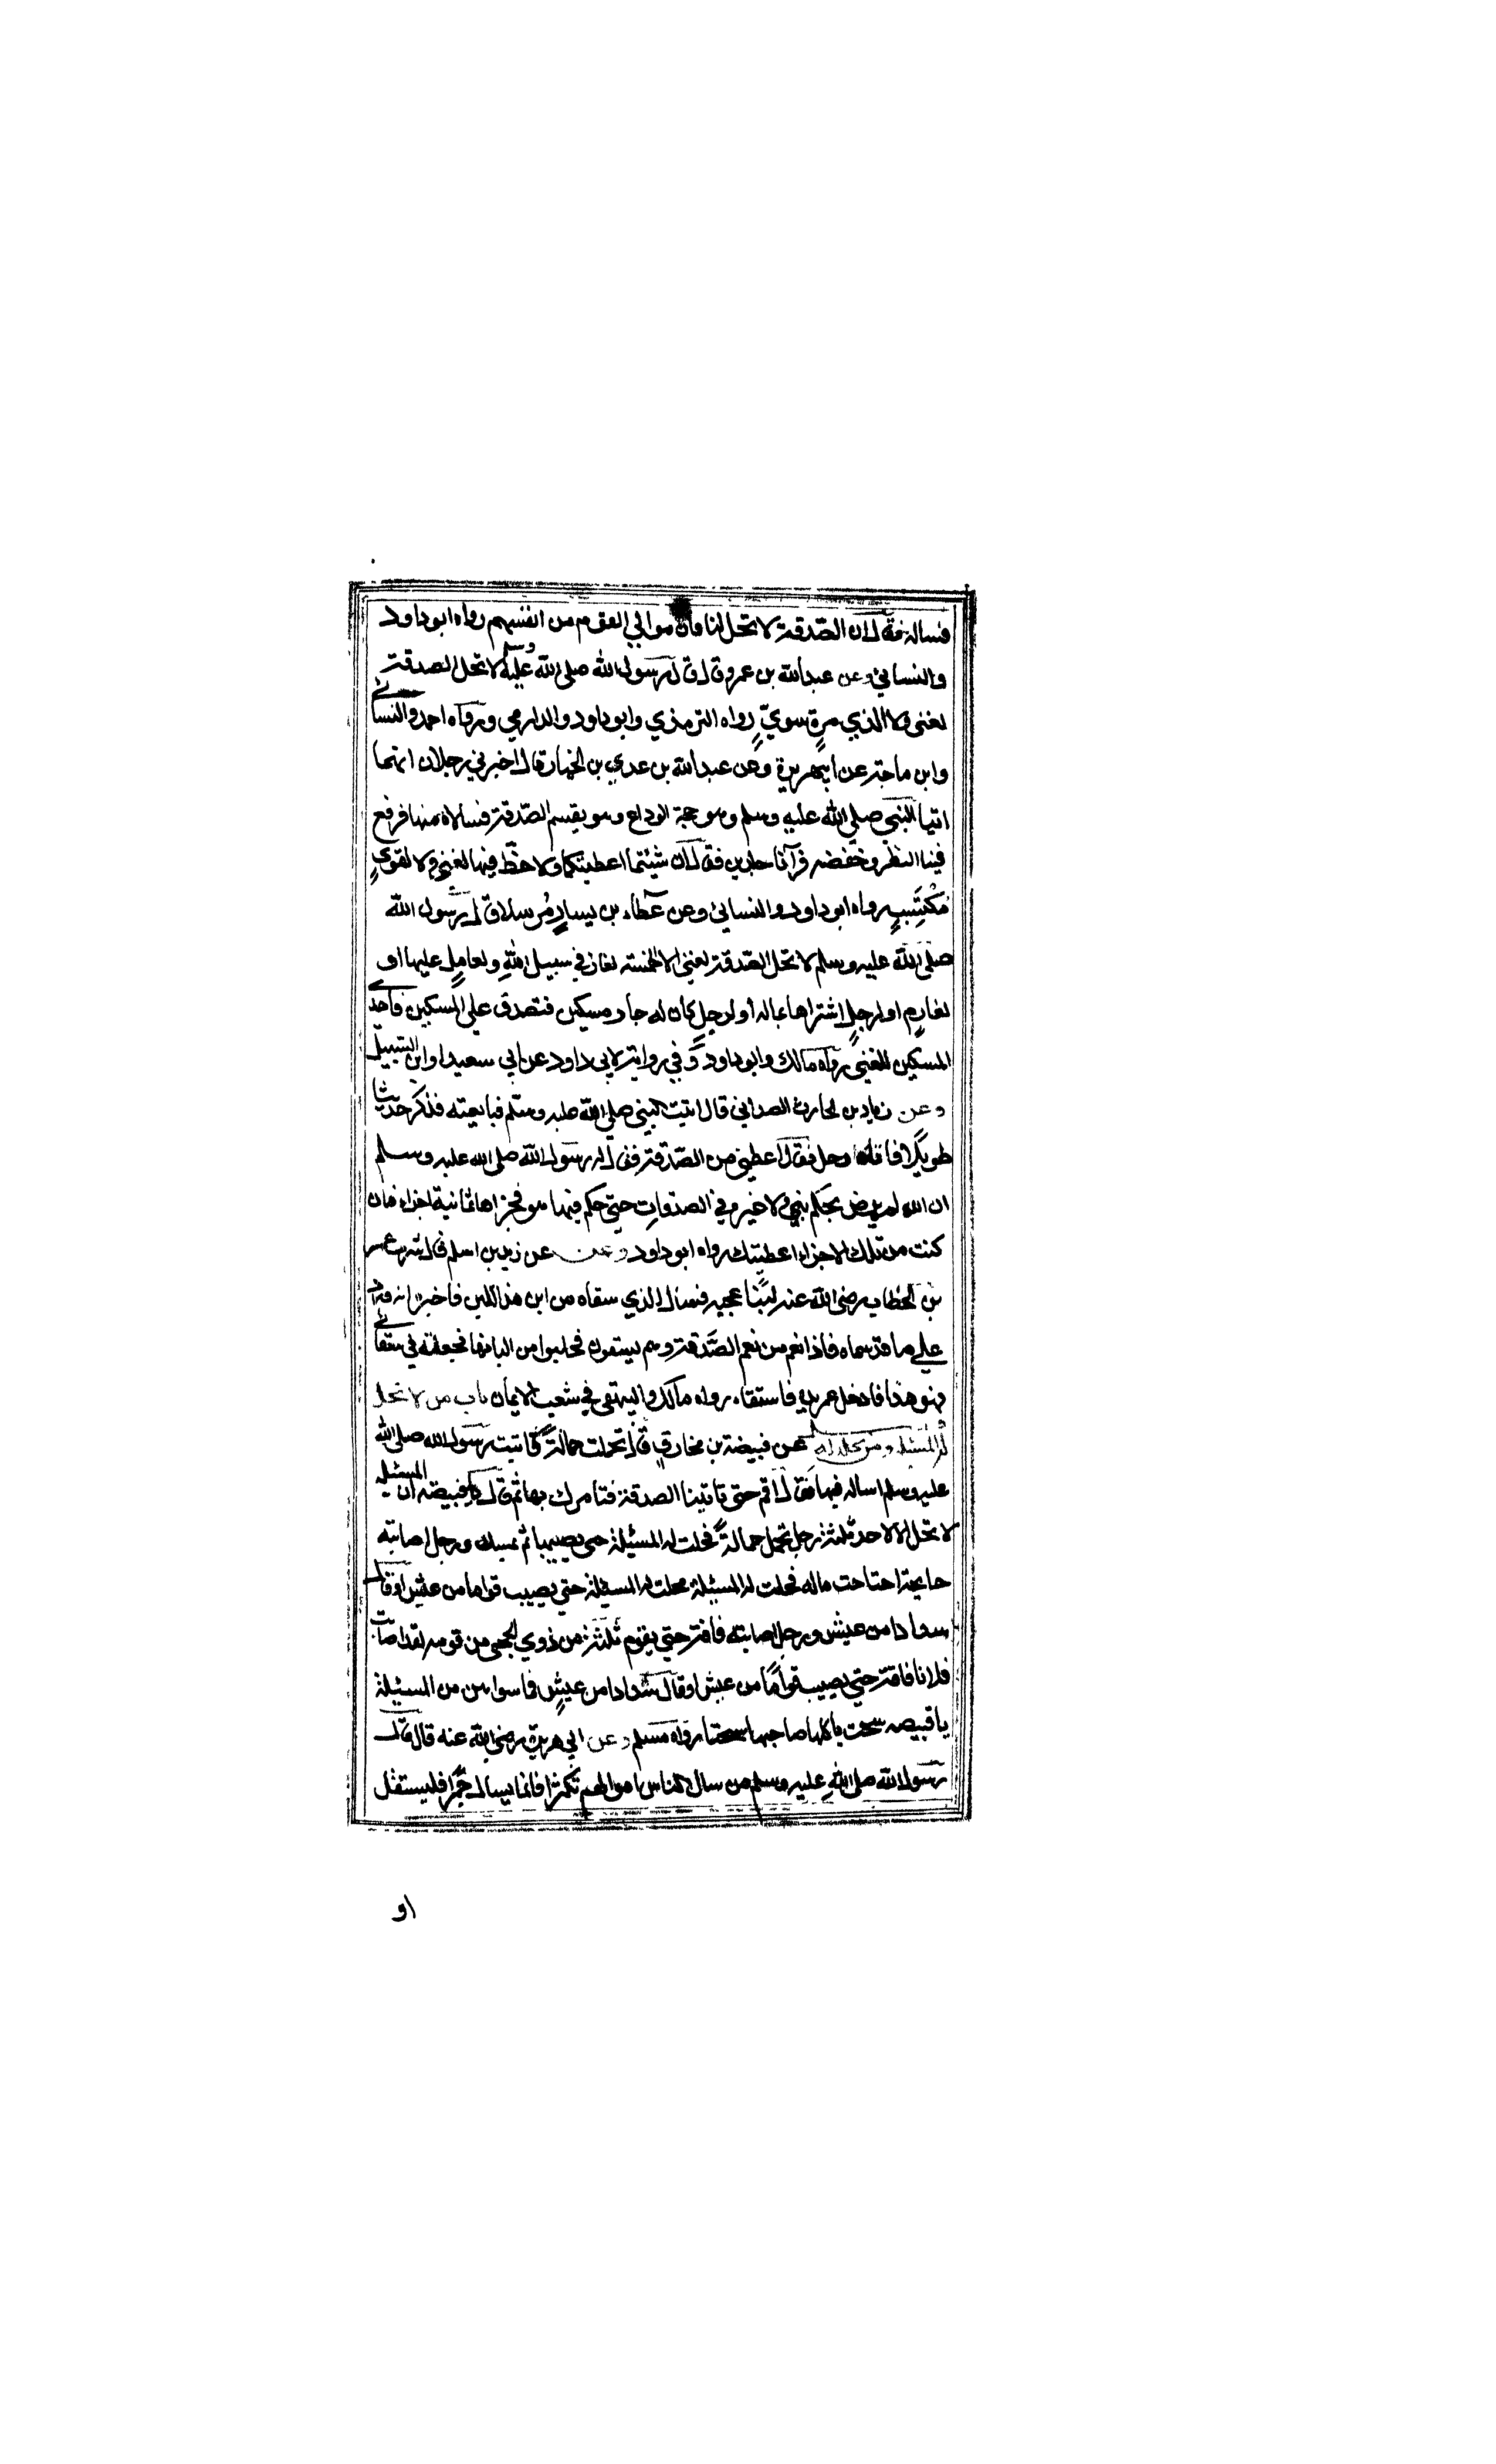 فساله فقال ان الصّدقة لا تحل لنا وان موالي القوم من انفسهم رواه ابو داود
والنسائي وعن عبد الله بن عمرو قال قال رسول الله صلى الله عليه وسلم لا تحل الصدقة
لغني ولا لذي مرة سويّ رواه الترمذي وابو داود والدارمي ورواه احمد والنسائي
وابن ماجة عن ابي هريرة وعن عبد الله بن عدي بن الخيار قال اخبرني رجلان انهما
اتيا النبي صلي الله عليه وسلم وهو حجة الوداع وهو يقسم الصّدقة فسألاه منها فرفع
فينا النظر وخفضه فرآنا جلدين فقال ان شئتما اعطيتكما ولا حظّ فيها لغني ولا لقويٍ
مُكْتَسِبٍ رواه ابو داود والنسائي وعن عطاء بن يسار مُرسلا قال رسول الله
صلى الله عليه وسلم لا تحل الصّدقة لغني الا لخمسة لغاز في سبيل اللهِ ولعاملٍ عليها او
لغارمٍ او لرجلٍ اشتراها بماله أو لرجلٍ كان له جار مسكين فتصدق علي المسكين فاهدى
المسكين للغني رواه مالك وابو داود وفي رواية لابي داود عن ابي سعيد او ابن السبيل
وعن زياد بن الحارث الصدائي قال اتيت النبي صلي الله عليه وسلم فبايعته فذكر حديثا
طويلا فاتاه رجل فقال اعطني من الصّدقة فقال له رسول الله صلى الله عليه وسلم
ان الله لم يرض بحكم نبي ولا غيره في الصدقات حتي حكم فيها هو فجزاها ثمانية اجزاء فان
كنت من تلك الاجزاء اعطيتك رواه ابو داود وعن عن زيد بن اسلم قال شرب عمر
بن الخطاب رضي الله عنه لبنا عجبه فسال الذي سقاه من اين هذا اللبن فاخبره انه ورد
علي ماء قد سماه فاذا نعم من نعم الصَّدقة وهم يسقون فحلبوا من البانها فجعلته في سقائي
فهو هذا فادخل عمر يده فاستقاء رواه مالك والبيهقي في شعب الايمان باب من لا تحل
له المسئلة ومن تحل له عن قبيصة بن مخارق قال تحملت حمالةً فاتيت رسول الله صلي الله
عليه وسلم اساله فيها فقال اقم حتى تاتينا الصدقة فنامرك بها ثم قال يا قبيصة ان المسئلة
لا تحل الا لاحد ثلثة رجل تحمل حمالةً فحلت له المسئلة حتى يصيبها ثم يمسك ورجل اصابته
جايحة اجتاحت ماله فحلت له المسئلة فحلت له المسئلة حتي يصيب قواما من عيش او قال
سدادا من عيش ورجل اصابته فاقة حتي يقوم ثلثة من ذوي الحجى من قومه لقد اصابت
فلانا فاقة حتي يصيب قواما من عيش او قال سدادا من عيشٍ فما سواهن من المسئلة
يا قبيصه سحت ياكلها صاحبها سحتا رواه مسلم وعن ابي هريرة رضي الله عنه قال قال
رسول الله صلى الله عليه وسلم من سال الناس اموالهم تكثرا فانما يسال جمرا فليستقل
او